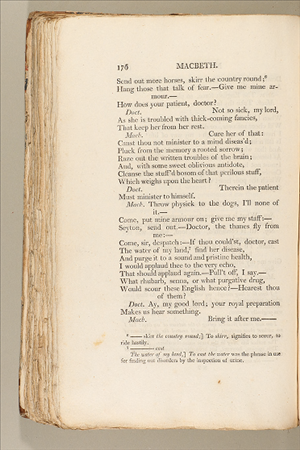 176 MACBETH.
Send out more horses, skirr the country round;⁶
Hang those that talk of fear.—Give me mine ar-
mour.—
How does your patient, doctor?
Doct. Not so sick, my lord,
As she is troubled with thick-coming fancies,
That keep her from her rest.
Macb. Cure her of that:
Canst thou not minister to a mind diseas'd;
Pluck from the memory a rooted sorrow;
Raze out the written troubles of the brain;
And, with some sweet oblivious antidote,
Cleanse the stuff'd bosom of that perilous stuff,
Which weighs upon the heart?
Doct. Therein the patient
Must minister to himself.
Macb. Throw physick to the dogs, I'll none of
it.—
Come, put mine armour on; give me my staff:—
Seyton, send out.—Doctor, the thanes fly from
me:—
Come, sir, despatch:—If thou could'st, doctor, cast
The water of my land,⁷ find her disease,
And purge it to a sound and pristine health,
I would applaud thee to the very echo,
That should applaud again.—Pull't off, I say.—
What rhubarb, senna, or what purgative drug,
Would scour these English hence?—Hearest thou
of them?
Doct. Ay, my good lord; your royal preparation
Makes us hear something.
Macb. Bring it after me.—
⁶ — skirr the country round;] To skirr, signifies to scour, to
ride hastily.
⁷ — cast
The water of my land,] To cast the water was the phrase in use
for finding out disorders by the inspection of urine.